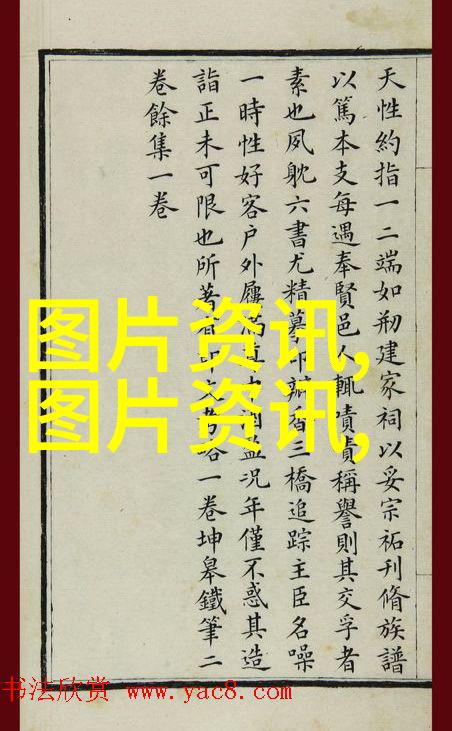 天性約指一二端如刱建家祠以妥宗祏刊脩族譜
以篤本支每遇奉賢邑人輒嘖嘖稱譽則其交孚者
素也夙躭六書尤精摹印瓣香三橋追踪主臣名噪
一時性好客户外屨滿況年僅不惑其造
詣正未可限也所著有印文考畧一卷坤皋鐵筆二
卷餘集一卷
图片资讯,
图片资讯,
书法欣赏 www.yac8.com